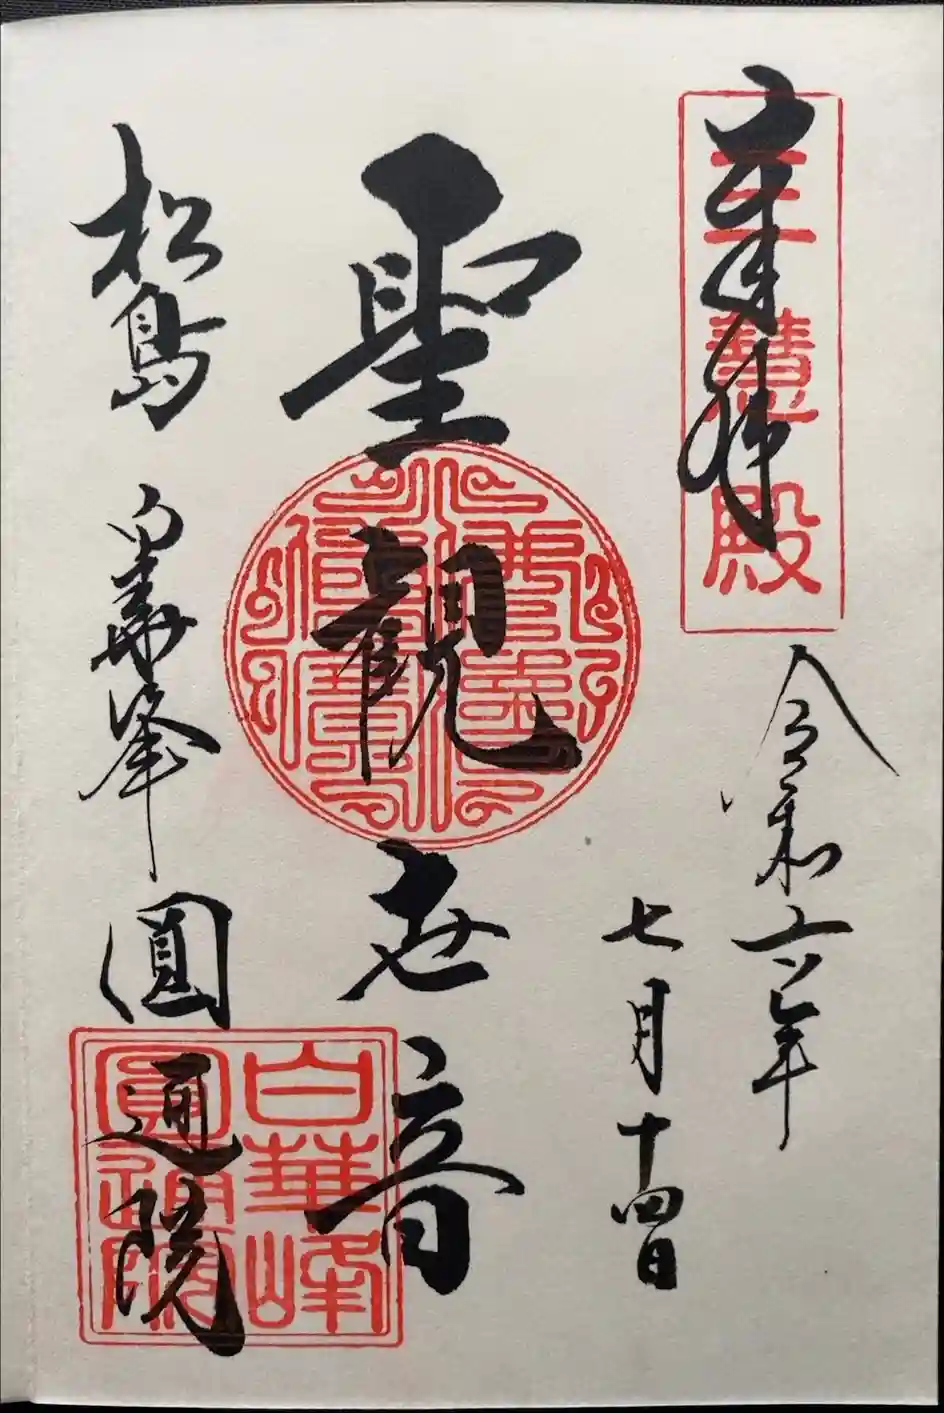 奉拝
三慧殿
令和六年
七月十四日
聖観世音
佛法僧寶
松島
白華峰
圓通院
白華峰
圓通院